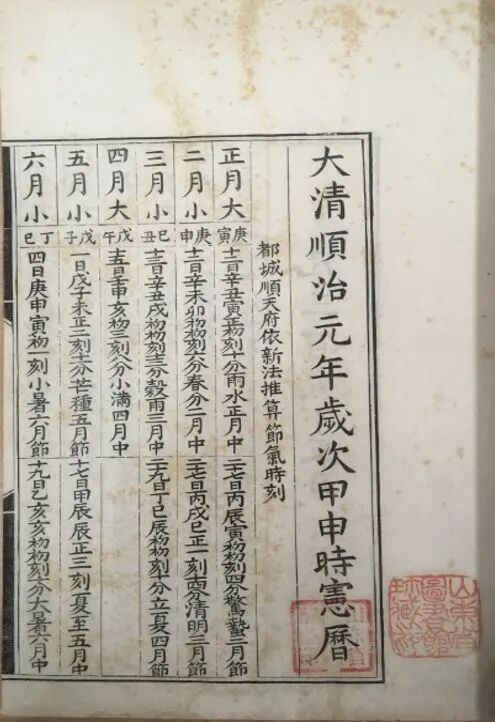 大清順治元年歲次甲申時憲曆
都城順天府依新法推算節氣時刻
正月大
庚寅
十二日辛丑寅正初刻十分雨水正月中
二十七日丙辰寅初初刻四分驚蟄二月節
二月小
庚申
十二日辛未卯初初刻六分春分二月中
二十七日丙戌巳正一刻十四分清明三月節
三月小
己丑
十三日辛丑戌初初刻十三分穀雨三月中
二十九日丁巳辰初初刻十分立夏四月節
四月大
戊午
十五日壬申亥初三刻八分小滿四月中
五月小
戊子
一日戊子未正二刻十分芒種五月節
十七日甲辰辰正三刻夏至五月中
六月小
丁巳
四日庚申寅初一刻小暑六月節
十九日乙亥亥初初刻十分大暑六月中
山東省
圖書館
珍藏印